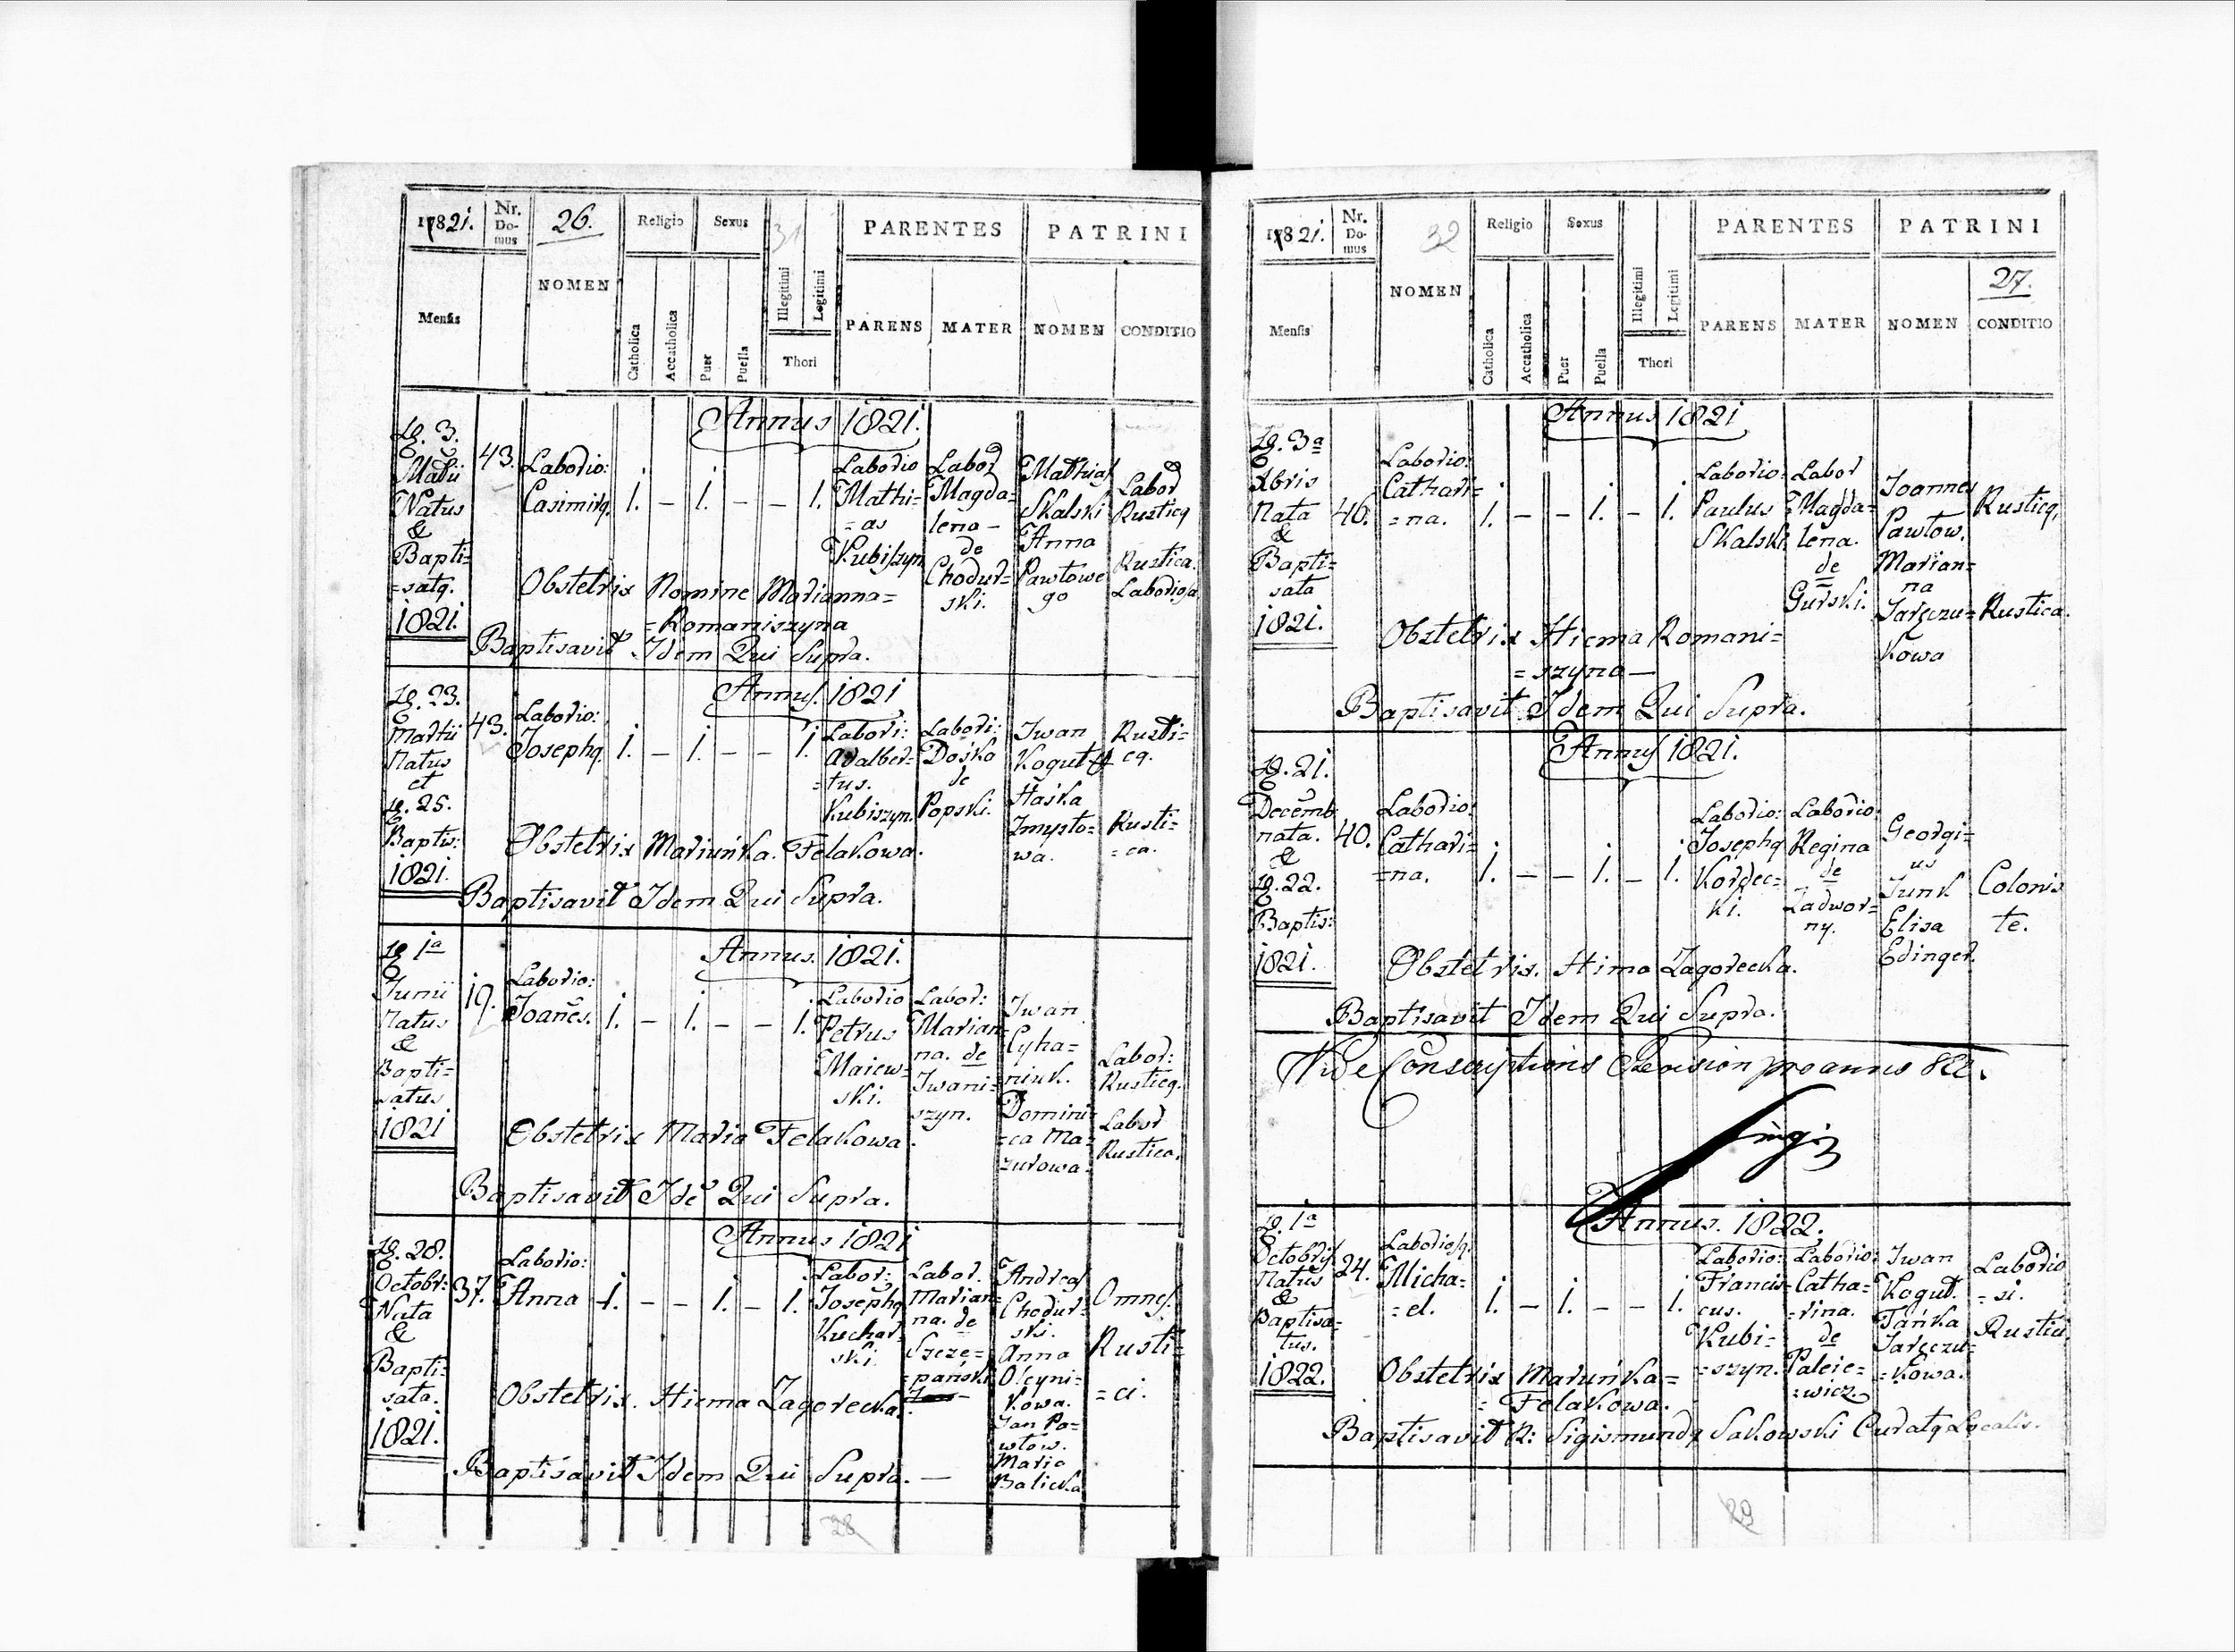 1821.
Nr. Domus
26.
Religio
Sexus
31
PARENTES
PATRINI
Mensis
NOMEN
Catholica
Accatholica
Puer
Puella
Illegitimi
Legitimi
Thori
PARENS
MATER
NOMEN
CONDITIO
Annus 1821.
3.
Natus
&
Bapti=
=satq.
1821.
43.
Laborio:
Casimirq.
1. – 1. – – 1.
Laborio
Mathi=
=as
Kubiszyn
Labor
Magda=
lena –
de
Chodur=
ski.
Mathias
Skalski
Anna
Pawłowe
go
Labor
Rusticq
Rustica.
Laboriosa
Obstetrix Nomine Marianna=
=Romaniszyna
Baptisavit Idem Qui Supra.
Annus. 1821
23.
Martii
Natus
et
25.
Baptis:
1821.
43.
Laborio:
Josephq.
1. – 1. – – 1.
Labori:
Adalber=
=tus.
Kubiszyn.
Labori:
Dośko
de
Popski.
Iwan
Kogut &
Haśka
Zmysło=
wa.
Rusti=
cq.
Rusti=
=ca.
Obstetrix Maruńka. Felakowa.
Baptisavit Idem Qui Supra.
Annus. 1821.
1a
Junii
Natus
&
Bapti=
satus
1821
19.
Laborio:
Joanes.
1. – 1. – – 1.
Laborio
Petrus
Maiew=
ski.
Labor:
Marian=
na. de
Iwani=
szyn.
Iwan
Cyha=
niuk.
Domini=
=ca Ma=
zurowa.
Labor:
Rusticq.
Labor
Rustica.
Obstetrix Maria Felakowa.
Baptisavit Ide Qui Supra.
Annus 1821
28.
Octobr:
Nata
&
Bapti=
sata.
1821.
37.
Laborio:
Anna
1. – – 1. – 1.
Labor:
Josephq
Kuchar=
ski.
Labor.
Marian=
na. de
Szcze=
pański
Andreas
Chodur=
ski.
Anna
Oleyni=
kowa.
Jan Pa=
włow.
Maria
Balicka
Omnes
Rusti=
=ci.
Obstetrix. Hicma Zagorecka.
Baptisavit Idem Qui Supra. —
28
1821.
Nr. Domus
32
Religio
Sexus
PARENTES
PATRINI
Mensis
NOMEN
Catholica
Accatholica
Puer
Puella
Illegitimi
Legitimi
Thori
PARENS
MATER
NOMEN
27.
CONDITIO
Annus 1821
3a
Xbris
Nata
&
Bapti=
sata
1821.
40.
Laborio:
Cathari=
=na.
1. – – 1. – 1.
Laborio:
Paulus
Skalski
Labor
Magda=
lena.
de
Gurski.
Joannes
Pawłow.
Marian=
na
Jaręczu=
kowa
Rusticq.
Rustica.
Obstetrix Hicma Romani=
=szyna —
Baptisavit Idem Qui Supra.
Annus 1821.
21.
Decemb
nata.
&
22.
Baptis:
1821.
40.
Laborio:
Cathari=
=na.
1. – – 1. – 1.
Laborio:
Josephq
Kordec=
ki.
Laborio:
Regina
de
Zadwor=
ny.
Georgi=
us
Junk
Elisa
Edinger.
Colonis
te.
Obstetrix. Hima Zagorecka.
Baptisavit Idem Qui Supra.
Annus. 1822.
1a
Octobris
Natus
&
Baptisa=
tus.
1822.
24.
Laboriosq.
Micha=
=el.
1. – 1. – – 1.
Laborio:
Francis=
cus.
Kubi=
=szyn.
Laborio:
Catha=
=rina.
de
Paleie=
=wicz.
Iwan
Kogut.
Tańka
Jaręczu=
=kowa.
Laborio
=si.
Rustici
Obstetrix Maruńka=
= Felakowa.
Baptisavit R: Sigismundq Sakowski Curatq Localis.
29